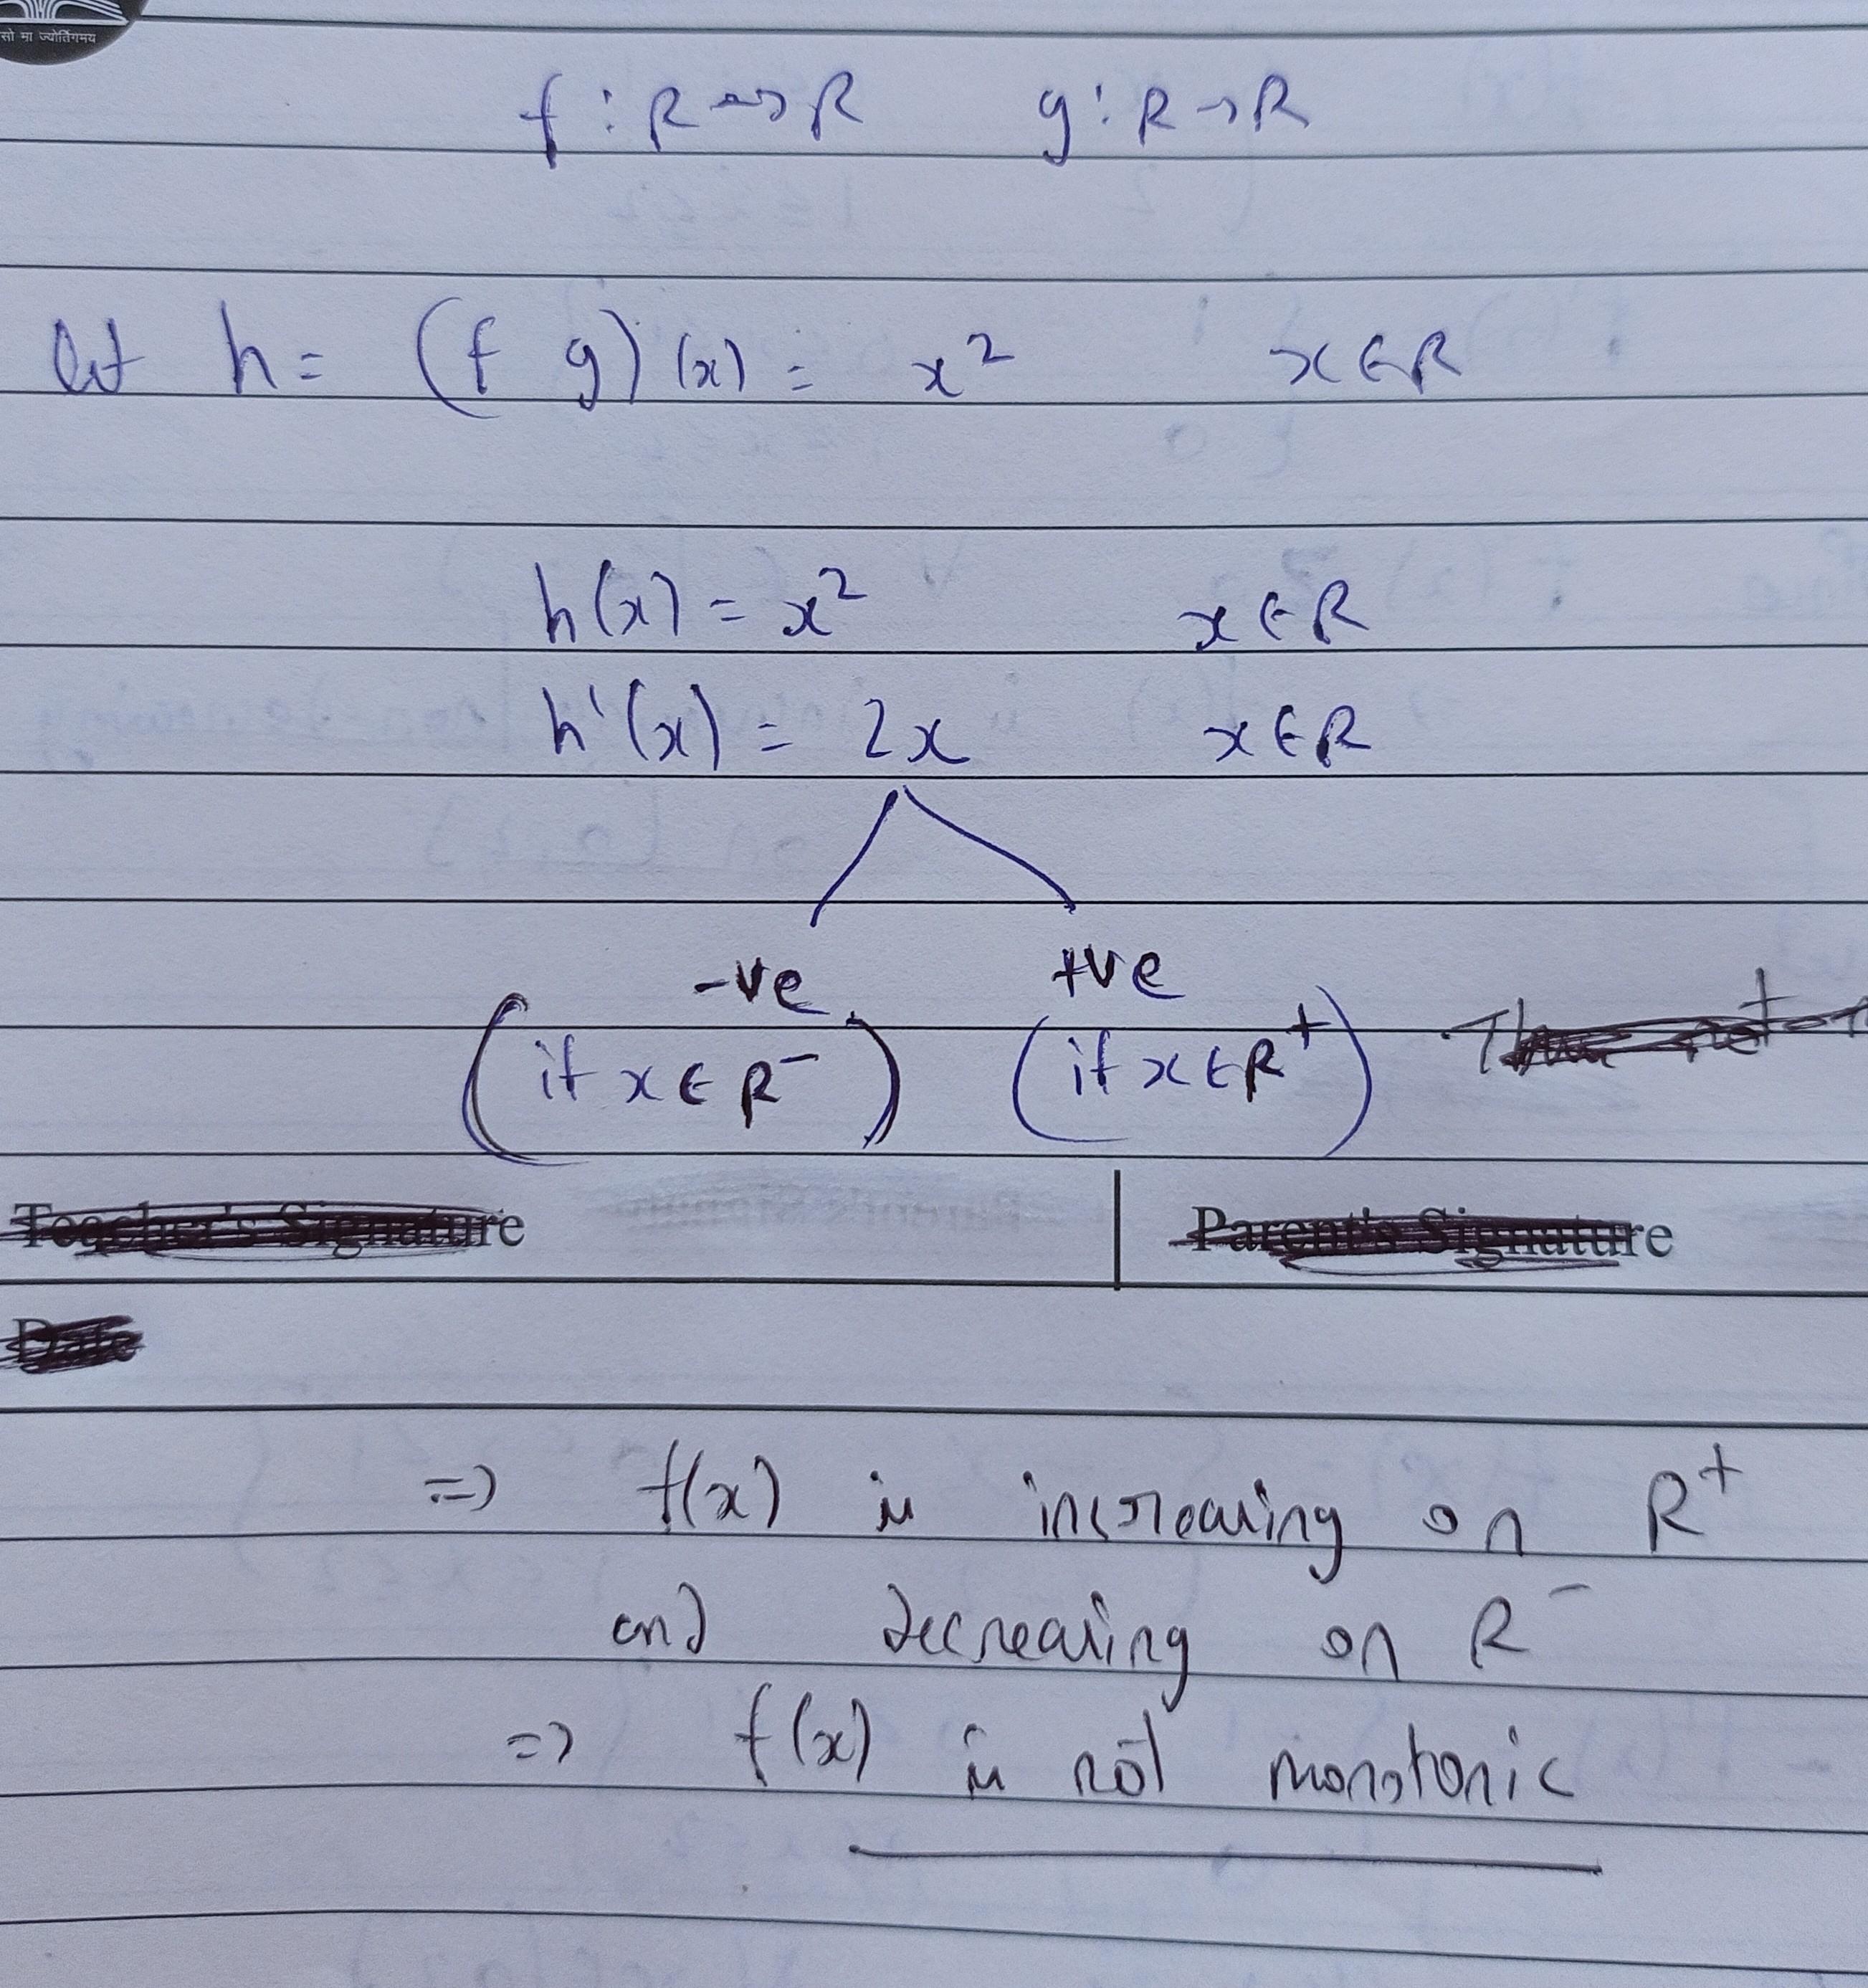 सो मा ज्योर्तिगमय
f : R → R g : R → R
let h = (f g) (x) = x² x ∈ R
h(x) = x² x ∈ R
h'(x) = 2x x ∈ R
-ve +ve
(if x ∈ R⁻) (if x ∈ R⁺)
Teacher's Signature Parent's Signature
Date
=> f(x) is increasing on R⁺
and decreasing on R⁻
=> f(x) is not monotonic